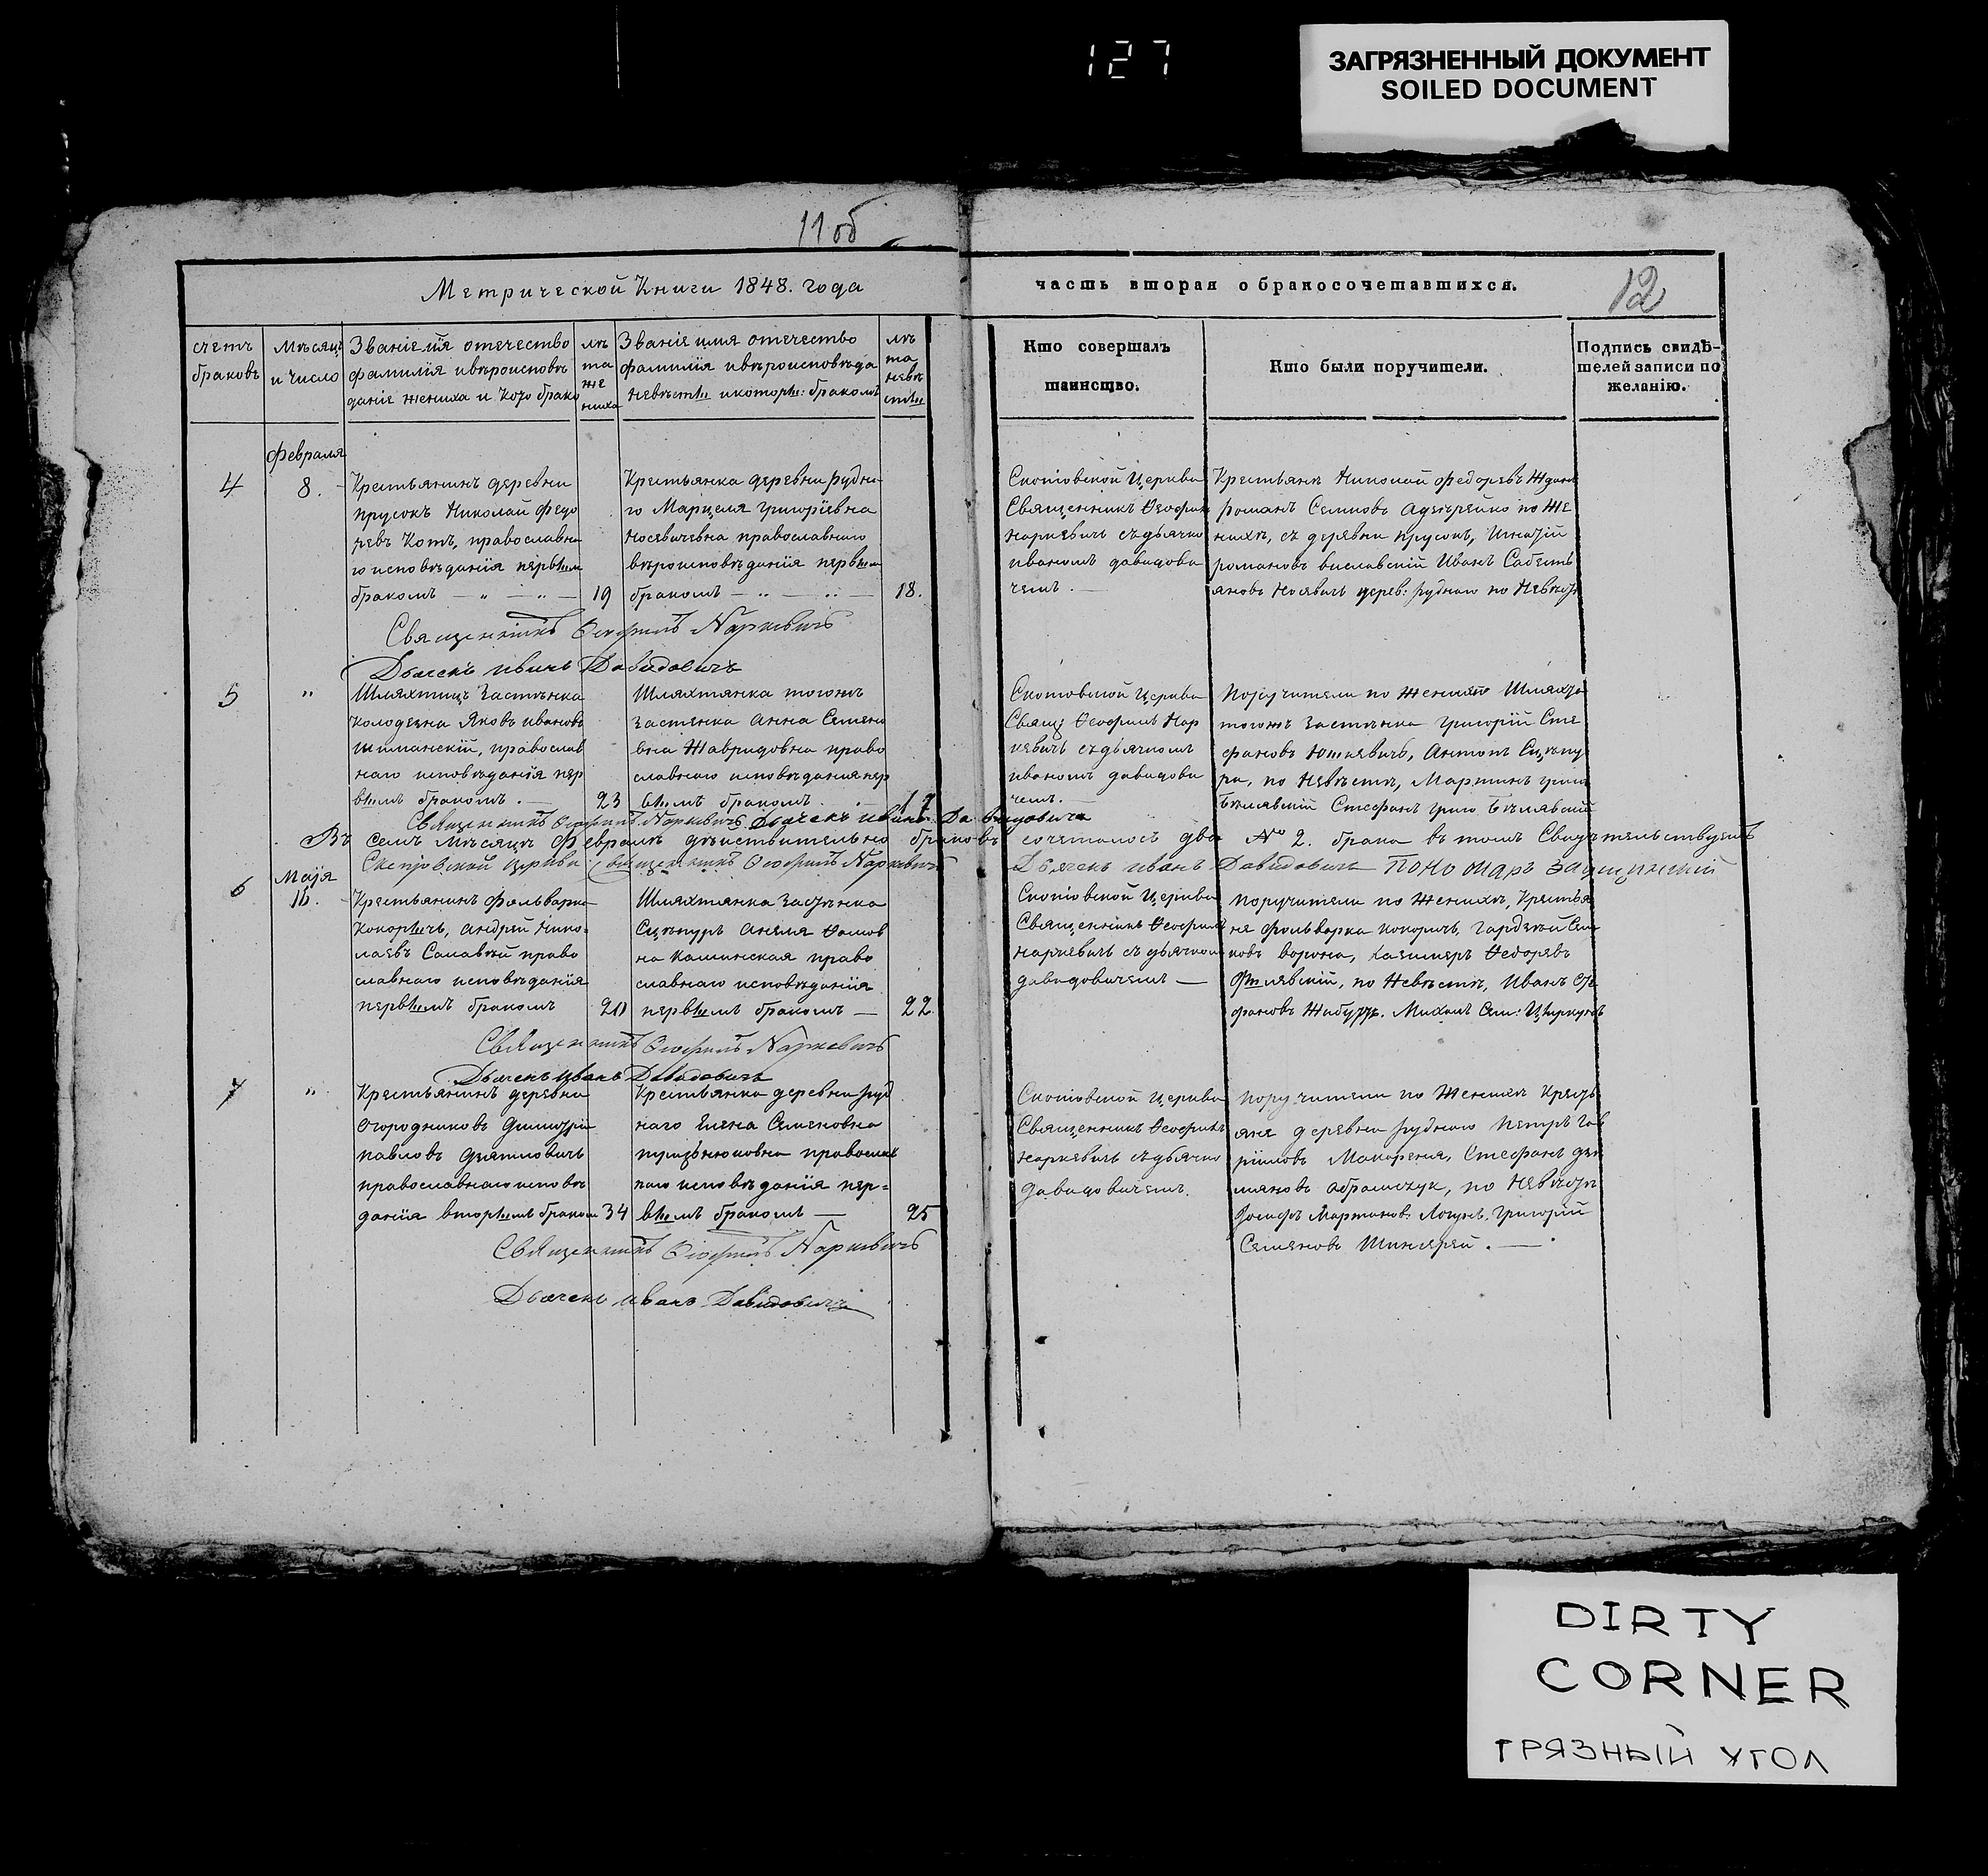 127
ЗАГРЯЗНЕННЫЙ ДОКУМЕНТ
SOILED DOCUMENT
11 об
12
Метрической Книги 1848. года
часть вторая о бракосочетавшихся.
счетъ
браковъ
Мѣсяцъ
и число
Званіе имя отечество
фамилія и вѣроисповѣ
даніе жениха и кого брако
лѣ
та
же
ниха
Званіе имя отечество
фамилія и вѣроисповѣда
невѣсты и которы: бракомъ
лѣ
та
невѣ
сты
Кто совершалъ
таинство.
Кто были поручители.
Подпись свидѣ-
телей записи по
желанію.
Февраля
4
8.
Крестьянинъ деревни
прусокъ Николай федо
ровъ Котъ, православна
го исповѣданія первым
бракомъ
19
Крестьянка деревни рудна
го Марцеля григоріевна
Носевичевна православнаго
вѣроисповѣданія первым
бракомъ
18.
Церкви
Священникъ Ѳеофил
наркевичъ съ дьячко
иваномъ давидови
чемъ.
Крестьяне Николай федоровъ
романъ по же
нихѣ, съ деревни прусокъ, Игнатій
романовъ Иванъ
яновъ Носевичъ дерев: руднаго по Невѣстѣ
Священникъ Ѳеофилъ Наркевичъ
Дьячекъ иванъ Давидовичъ
5
"
Шляхтицъ Застѣнка
Колодезна Яковъ ивановъ
Шиманскій, православ
наго исповѣданія пер
вымъ бракомъ.
23
Шляхтянка тогожъ
Застенка Анна Семено
вна право
славнаго исповѣданія пер
вымъ бракомъ.
17
Церкви
Свящ: Ѳеофилъ Нар
кевичъ съ дьячкомъ
иваномъ давидови
чемъ.
Поручители по Женихѣ Шляхта
тогожъ застѣнка григорій Сте
фановъ Юшкевичъ, Антонъ Сцепу
ра, по Невѣстѣ, Мартинъ григо
Бѣлявскій Стефанъ григо Бѣлявскій
Священникъ Ѳеофилъ Наркевичъ Дьячекъ иванъ Давидовичъ
Въ семъ мѣсяцѣ Февралѣ дѣйствительно браковъ сочеталось два № 2. брака въ томъ Свидѣтельствуемъ
Церкви Священникъ Ѳеофилъ Наркевичъ Дьячекъ иванъ Давидовичъ Пономарь
Маія
6
16.
Крестьянинъ Фольварка
Кокорычъ, андрей Нико-
лаевъ право
славнаго исповѣданія
первымъ бракомъ
20
Шляхтянка застѣнка
Сцепуръ Анеля Ѳомов
на Каминская право
славнаго исповѣданія
первымъ бракомъ
22
Церкви
Священникъ Ѳеофилъ
наркевичъ съ дьячком
давидовичемъ
поручители по Женихѣ, Крестья
не фольварка кокорычъ, гордѣй Сем
новъ ворона, казимеръ Ѳедоровъ
по Невѣстѣ, Иванъ Сте
фановъ Михаилъ Сем:
Священникъ Ѳеофилъ Наркевичъ
Дьячекъ Иванъ Давидовичъ
7
"
Крестьянинъ деревни
Огородниковъ Димитрій
Павловъ Дмитровичъ
православнаго исповѣ
данія вторымъ браком
34
Крестьянка деревни руд
наго Елена Семеновна
православ
наго исповѣданія пер-
вымъ бракомъ
25
Церкви
Священникъ Ѳеофилъ
наркевичъ съ дьячко
давидовичемъ.
Поручители по Женихѣ Кресть
яне деревни руднаго Петръ Гав
риловъ Макареня, Стефанъ
яновъ Абрамчук, по Невѣстѣ
Іосифъ Мартинов: Григорій
Семеновъ
Священникъ Ѳеофилъ Наркевичъ
Дьячекъ иванъ Давидовичъ
DIRTY
CORNER
ГРЯЗНЫЙ УГОЛ